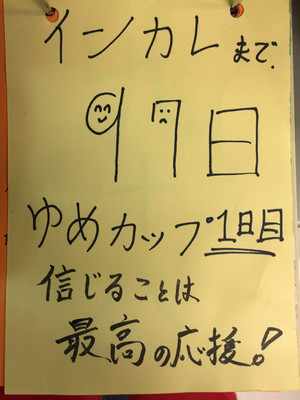 インカレまで
97日
ゆめカップ1日目
信じることは
最高の応援!